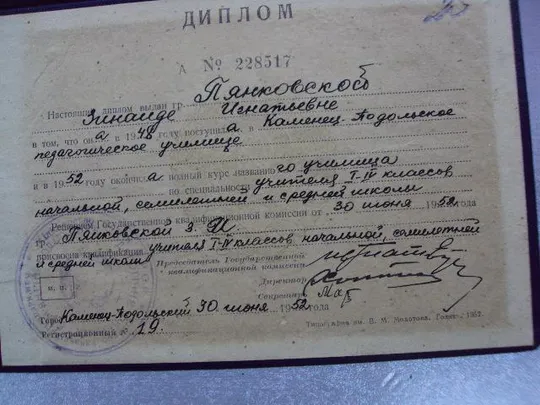 ДИПЛОМ
А № 228517
Настоящий диплом выдан гр. Пянковской
Зинаиде Игнатьевне
в том, что он а в 1948 году поступил а в Каменец-Подольское
педагогическое училище
и в 1952 году окончил а полный курс названного училища
по специальности учителя I-IV классов
начальной, семилетней и средней школы
Решением Государственной квалификационной комиссии от 30 июня 1952 года
гр. Пянковской З. И.
присвоена квалификация учителя I-IV классов начальной, семилетней
и средней школы
Председатель Государственной
квалификационной комиссии
Директор
Секретарь
м. п.
Город Каменец-Подольский 30 июня 1952
Регистрационный № 19.